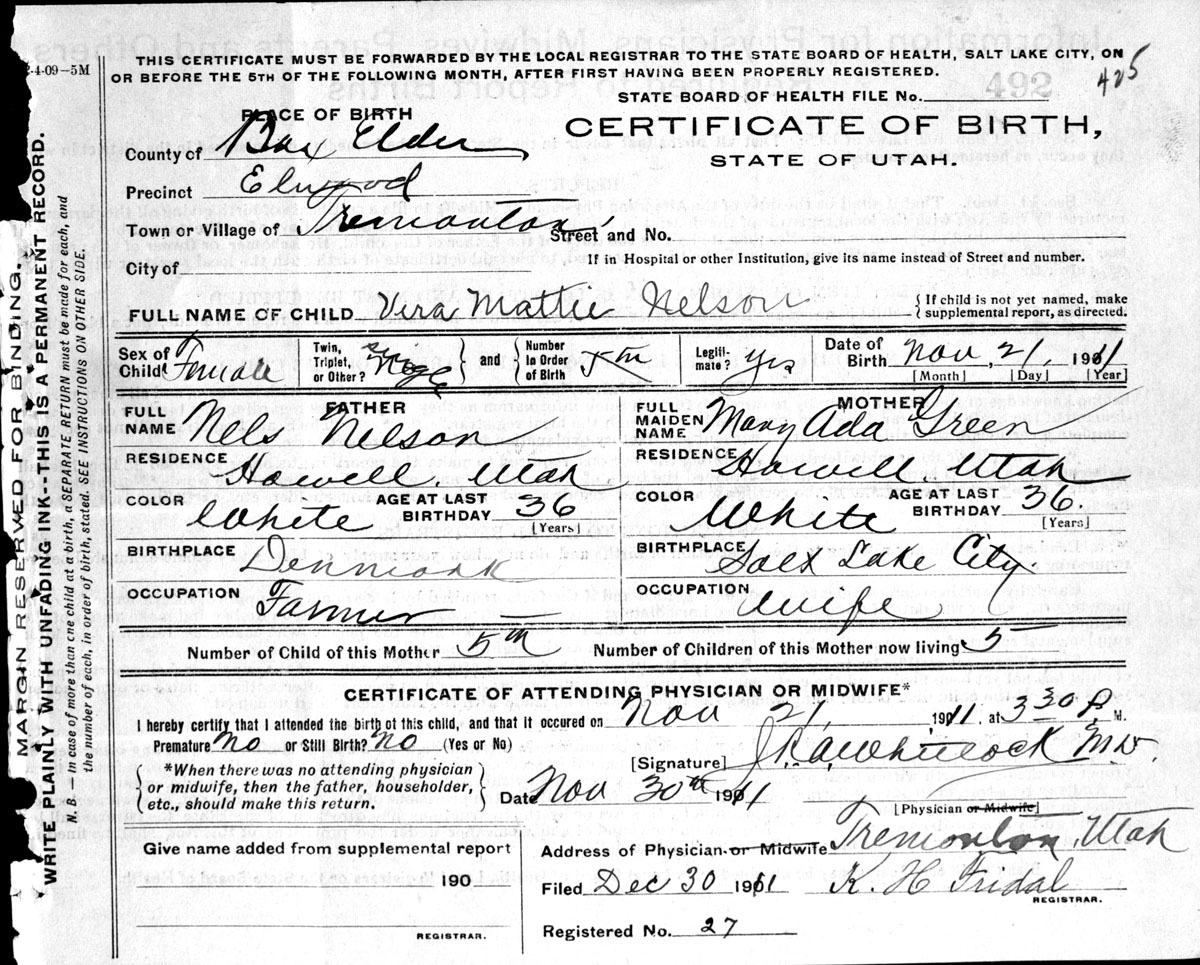 2-4-09-5M
THIS CERTIFICATE MUST BE FORWARDED BY THE LOCAL REGISTRAR TO THE STATE BOARD OF HEALTH, SALT LAKE CITY, ON
OR BEFORE THE 5TH OF THE FOLLOWING MONTH, AFTER FIRST HAVING BEEN PROPERLY REGISTERED.
425
STATE BOARD OF HEALTH FILE No.
492
PLACE OF BIRTH
CERTIFICATE OF BIRTH,
STATE OF UTAH.
County of Box Elder
Precinct Elwood
Town or Village of Tremonton Street and No.
City of If in Hospital or other Institution, give its name instead of Street and number.
FULL NAME OF CHILD Vera Mattie Nelson { If child is not yet named, make supplemental report, as directed.
Sex of Child Female Twin, Triplet, or Other? Single } and { Number In Order of Birth 5th Legitimate? Yes Date of Birth Nov, 21 1911
[Month] [Day] [Year]
FATHER
FULL NAME Nels Nelson
RESIDENCE Howell, Utah
COLOR White AGE AT LAST BIRTHDAY 36 [Years]
BIRTHPLACE Denmark
OCCUPATION Farmer
MOTHER
FULL MAIDEN NAME Mary Ada Green
RESIDENCE Howell, Utah
COLOR White AGE AT LAST BIRTHDAY 36. [Years]
BIRTHPLACE Salt Lake City
OCCUPATION Wife
Number of Child of this Mother 5th Number of Children of this Mother now living 5
CERTIFICATE OF ATTENDING PHYSICIAN OR MIDWIFE*
I hereby certify that I attended the birth of this child, and that it occured on Nov 21, 1911. at 3 30 P M.
Premature? No or Still Birth? No (Yes or No)
[Signature] Whitlock MD.
{ *When there was no attending physician
or midwife, then the father, householder,
etc., should make this return. }
Date Nov 30th 1911
[Physician or Midwife]
Give name added from supplemental report
190
REGISTRAR.
Address of Physician or Midwife Tremonton, Utah
Filed Dec 30 1911 K. H. Fridal
REGISTRAR.
Registered No. 27
MARGIN RESERVED FOR BINDING.
WRITE PLAINLY WITH UNFADING INK--THIS IS A PERMANENT RECORD.
N. B. — In case of more than one child at a birth, a SEPARATE RETURN must be made for each, and
the number of each, in order of birth, stated. SEE INSTRUCTIONS ON OTHER SIDE.